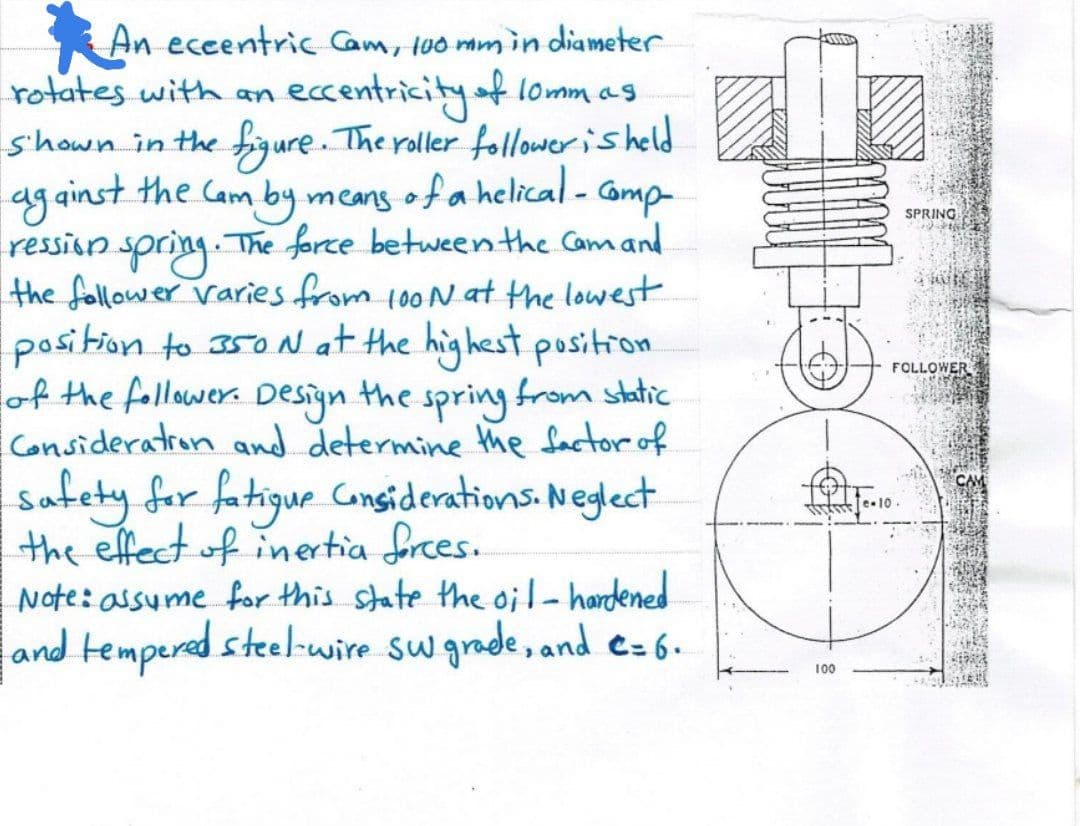 An eccentric Cam, 100 mm in diameter
rotates with an eccentricity of 10mm as
shown in the figure. The roller follower is held
against the Cam by means of a helical - Comp-
ression spring. The force between the Cam and
the follower varies from 100 N at the lowest
position to 350 N at the highest position
of the follower. Design the spring from static
Consideration and determine the factor of
safety for fatigue Considerations. Neglect
the effect of inertia forces.
Note: assume for this state the oil - hardened
and tempered steel-wire SW grade, and C= 6.
SPRING
FOLLOWER
CAM
e=10
100